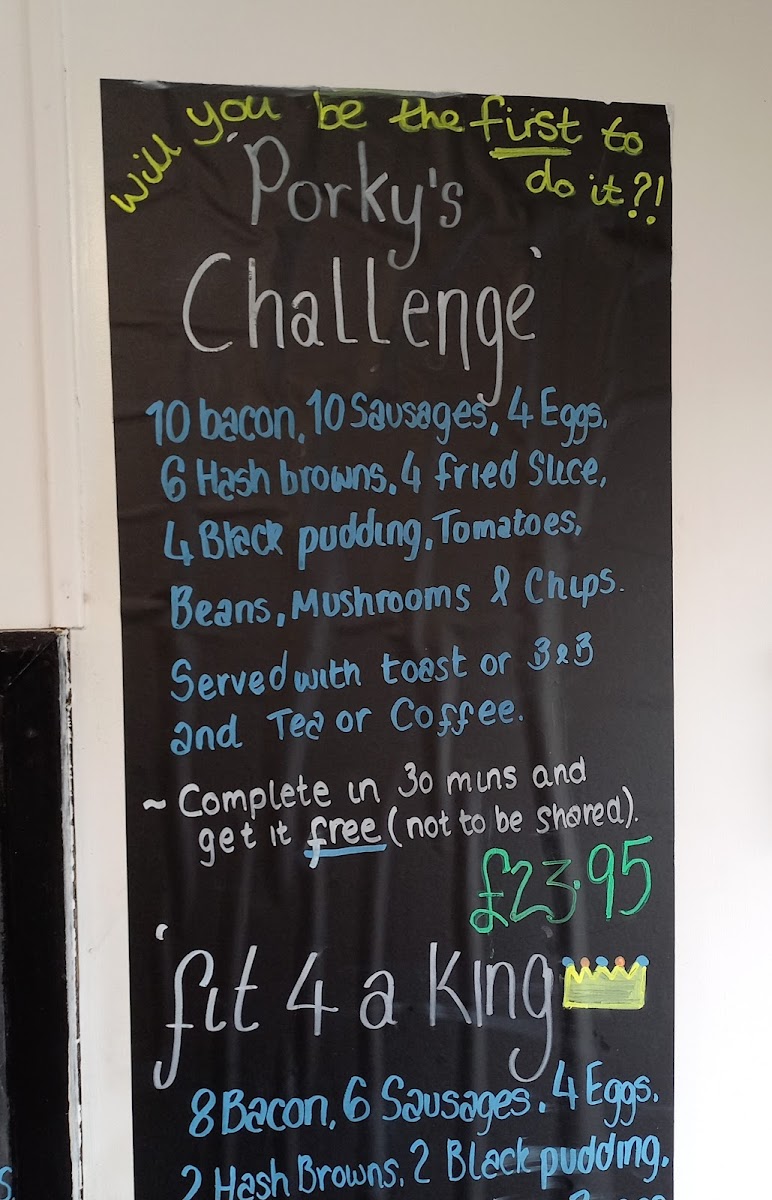 Will you be the first to
do it?!
'Porky's
Challenge'
10 bacon, 10 Sausages, 4 Eggs,
6 Hash browns, 4 fried Slice,
4 Black pudding, Tomatoes,
Beans, Mushrooms & Chips.
Served with toast or B&B
and Tea or Coffee.
~ Complete in 30 mins and
get it free (not to be shared).
£23.95
'fit 4 a King
8 Bacon, 6 Sausages, 4 Eggs,
2 Hash Browns, 2 Black pudding,